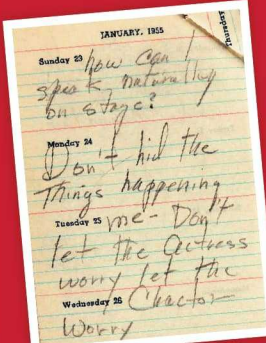 JANUARY, 1955
Thursday
Sunday 23 how can I
speak naturally
on stage?
Monday 24
Don't hid the
Things happening
Tuesday 25 me - Don't
let the actress
worry let the
Wednesday 26 Chactor
Worry